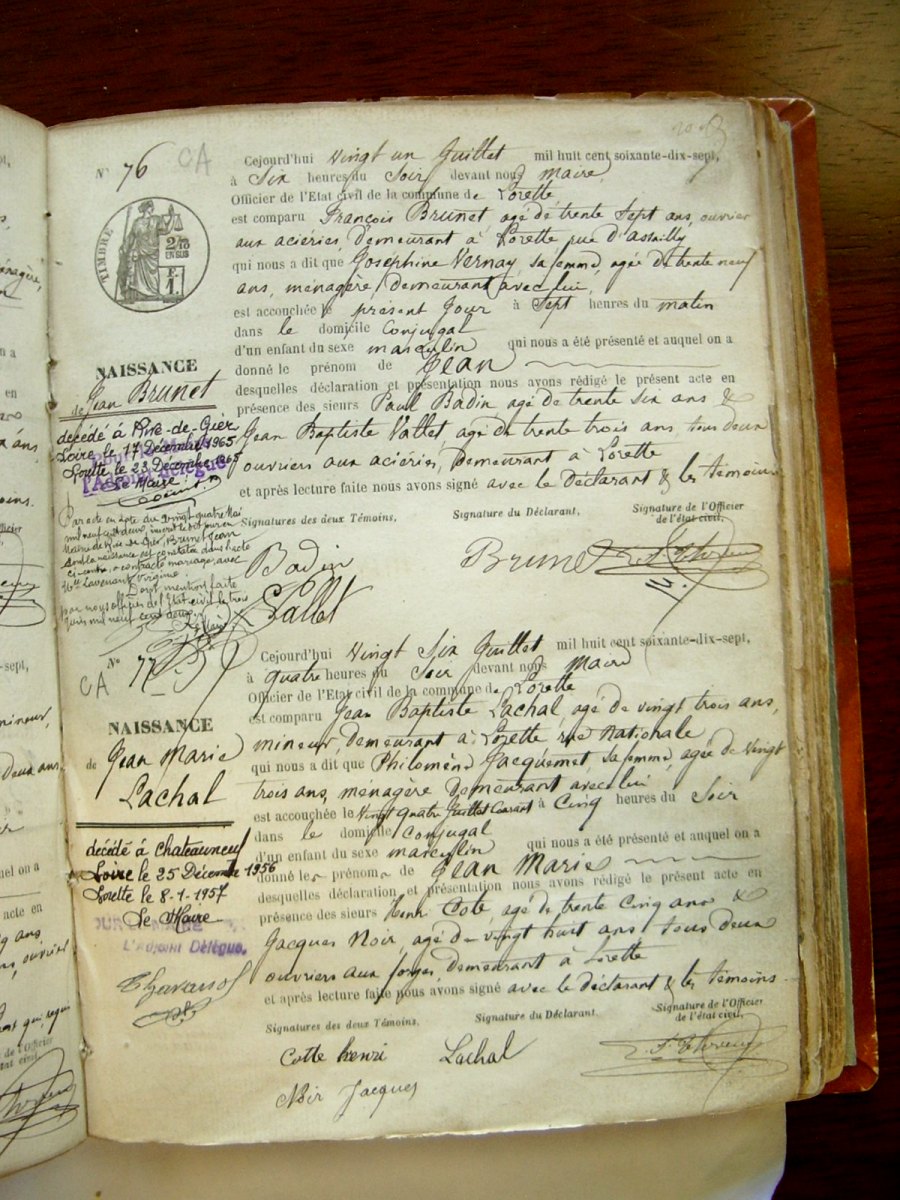 N° 76
CA
TIMBRE
2/10
EN SUS
NAISSANCE
de Jean Brunet
décédé à Rive-de-Gier
Loire le 17 Décembre 1965
Lorette le 23 Décembre 1965
Le Maire
l'Adjoint délégué
Par acte en date du vingt quatre Mai
mil neuf cent deux, inscrit
Mairie de Rive de Gier, Brunet Jean
dont la naissance est constatée dans l'acte
ci-contre, a contracté mariage avec
Virginie
Dont mention faite
par nous officier de l'Etat civil le trois
Juin mil neuf cent deux
Cejourd'hui Vingt un Juillet mil huit cent soixante-dix-sept,
à Six heures du Soir devant nous Maire
Officier de l'Etat civil de la commune de Lorette
est comparu François Brunet agé de trente Sept ans, ouvrier
aux aciéries, demeurant à Lorette rue d'Assailly
qui nous a dit que Joséphine Vernay, sa femme, agée de trente neuf
ans, ménagère, demeurant avec lui,
est accouchée le présent Jour à Sept heures du matin
dans le domicile Conjugal
d'un enfant du sexe masculin qui nous a été présenté et auquel on a
donné le prénom de Jean
desquelles déclaration et présentation nous avons rédigé le présent acte en
présence des sieurs Paul Badin agé de trente Six ans &
Jean Baptiste Vallet, agé de trente trois ans tous deux
ouvriers aux aciéries, demeurant à Lorette
et après lecture faite nous avons signé avec le déclarant & les témoins
Signatures des deux Témoins, Signature du Déclarant, Signature de l'Officier
de l'état civil,
Badin Brunet
Vallet
N° 77
CA
NAISSANCE
de Jean Marie
Lachal
décédé à Chateauneuf
Loire le 25 Décembre 1956
Lorette le 8-1-1957
Le Maire
L'Adjoint Délégué.
Cejourd'hui Vingt Six Juillet mil huit cent soixante-dix-sept,
à quatre heures du Soir devant nous Maire
Officier de l'Etat civil de la commune de Lorette
est comparu Jean Baptiste Lachal, agé de vingt trois ans,
mineur, demeurant à Lorette rue Nationale
qui nous a dit que Philomène Jacquemet sa femme, agée de vingt
trois ans, ménagère demeurant avec lui
est accouchée le Vingt quatre Juillet Courant à Cinq heures du Soir
dans le domicile Conjugal
d'un enfant du sexe masculin qui nous a été présenté et auquel on a
donné les prénoms de Jean Marie
desquelles déclaration et présentation nous avons rédigé le présent acte en
présence des sieurs Henri Cote, agé de trente Cinq ans &
Jacques Noir, agé de vingt huit ans tous deux
ouvriers aux forges, demeurant à Lorette
et après lecture faite nous avons signé avec le déclarant & les témoins
Signatures des deux Témoins. Signature du Déclarant, Signature de l'Officier
de l'état civil,
Cotte henri Lachal
Noir Jacques